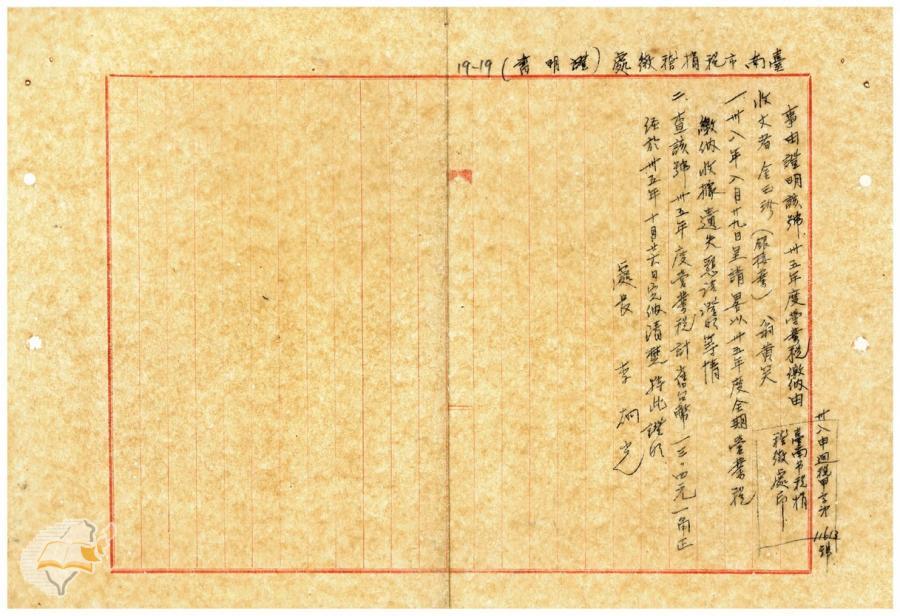 臺南市稅捐稽徵處(證明書)19-19
卅八申迴稅甲字第11613號
臺南市稅捐
稽徵處印
事由證明該號卅五年度營業稅繳納由
收文者 金玉珍(銀樓業) 翁黃笑
一、卅八年八月廿九日呈請畧以卅五年度全期營業稅
繳納收據遺失懇請證明等情
二、查該號卅五年度營業稅計舊台幣一三〇四元一角正
經於卅五年十月廿六日完納清楚特此證明
處長 李炳光